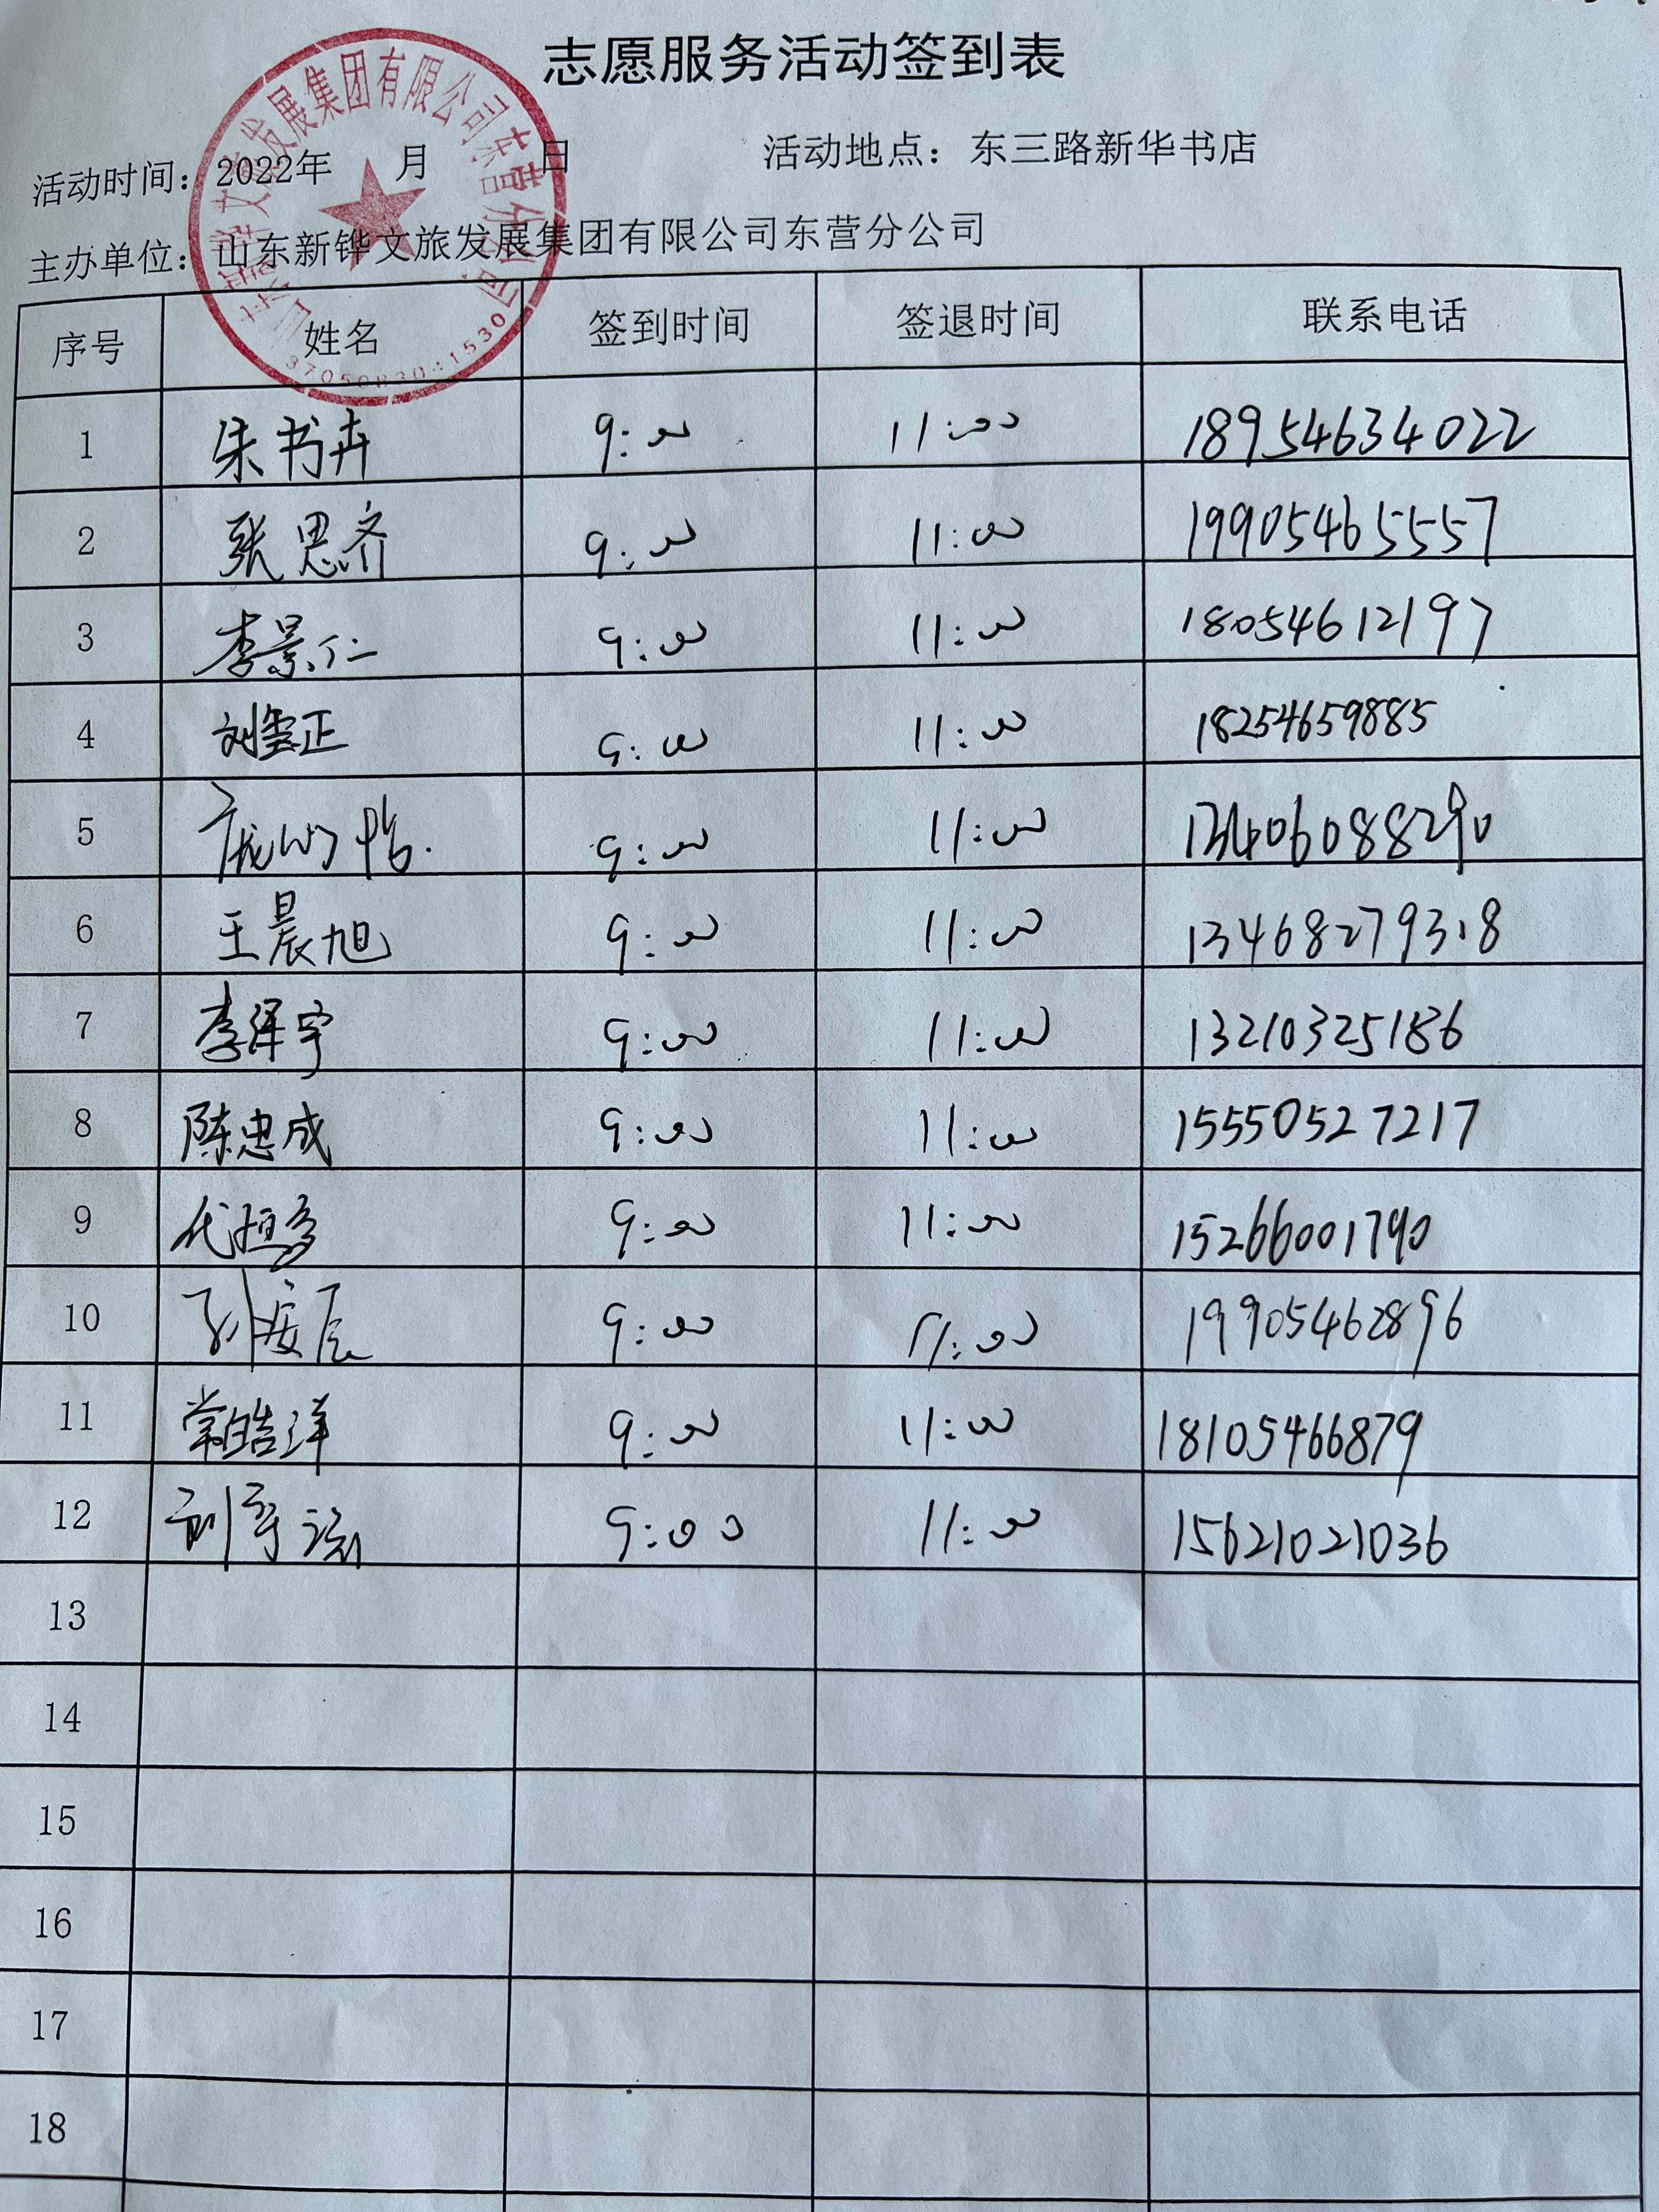 志愿服务活动签到表
活动时间：2022年 月 日 活动地点：东三路新华书店
主办单位：山东新铧文旅发展集团有限公司东营分公司
序号 姓名 签到时间 签退时间 联系电话
1 朱书卉 9:00 11:00 18954634022
2 张思齐 9:00 11:00 19905465557
3 李景仁 9:00 11:00 18054612197
4 刘雲正 9:00 11:00 18254659885
5 庞 怡 9:00 11:00 13406088290
6 王晨旭 9:00 11:00 13468279318
7 李泽宇 9:00 11:00 13210325186
8 陈忠成 9:00 11:00 15550527217
9 代 9:00 11:00 15266001790
10 孙 辰 9:00 11:00 19905462896
11 常皓洋 9:00 11:00 18105466879
12 刘 9:00 11:00 15621021036
13
14
15
16
17
18